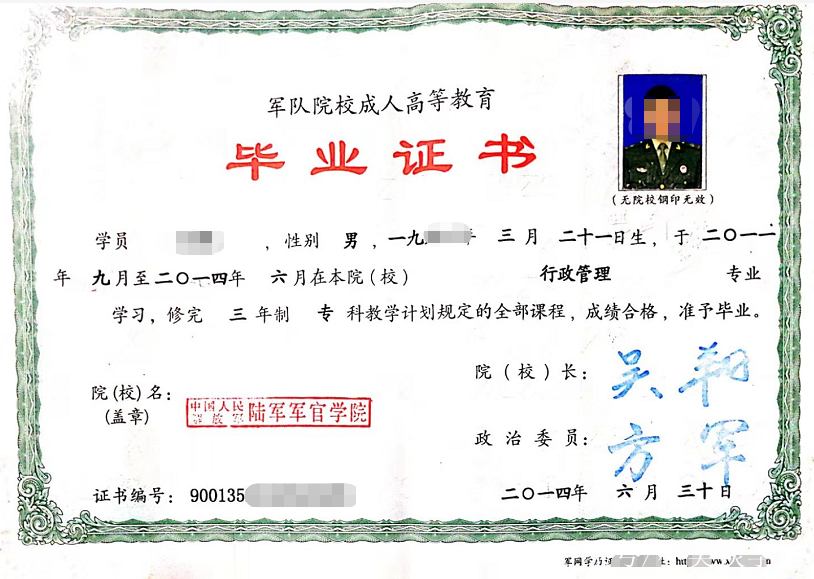 军队院校成人高等教育
毕业证书
(无院校钢印无效)
学员 , 性别 男 , 一九 年 三 月 二十一日生, 于 二〇一一
年 九月至二〇一四年 六月在本院(校) 行政管理 专业
学习, 修完 三 年制 专 科教学计划规定的全部课程, 成绩合格, 准予毕业。
院(校)长: 吴翔
院(校)名:
(盖章)
中国人民解放军 陆军军官学院
政治委员: 方军
证书编号: 900135
二〇一四年 六月 三十日